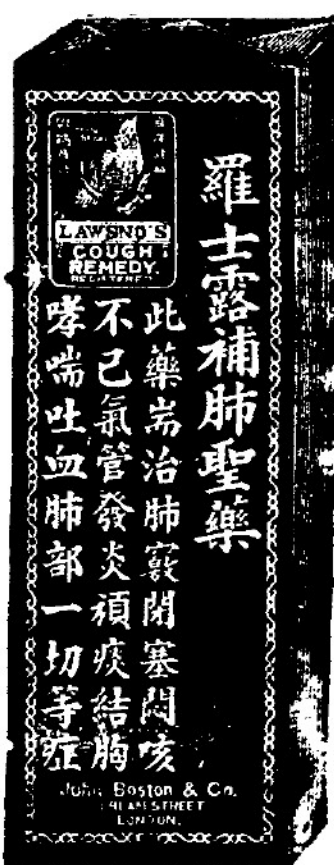 LAWSNO'S
COUGH
REMEDY.
REGISTERED
羅士露補肺聖藥
此藥耑治肺竅閉塞悶咳
不已氣管發炎頑痰結胸
哮喘吐血肺部一切等症
John Boston & Co.
STREET
LONDON.